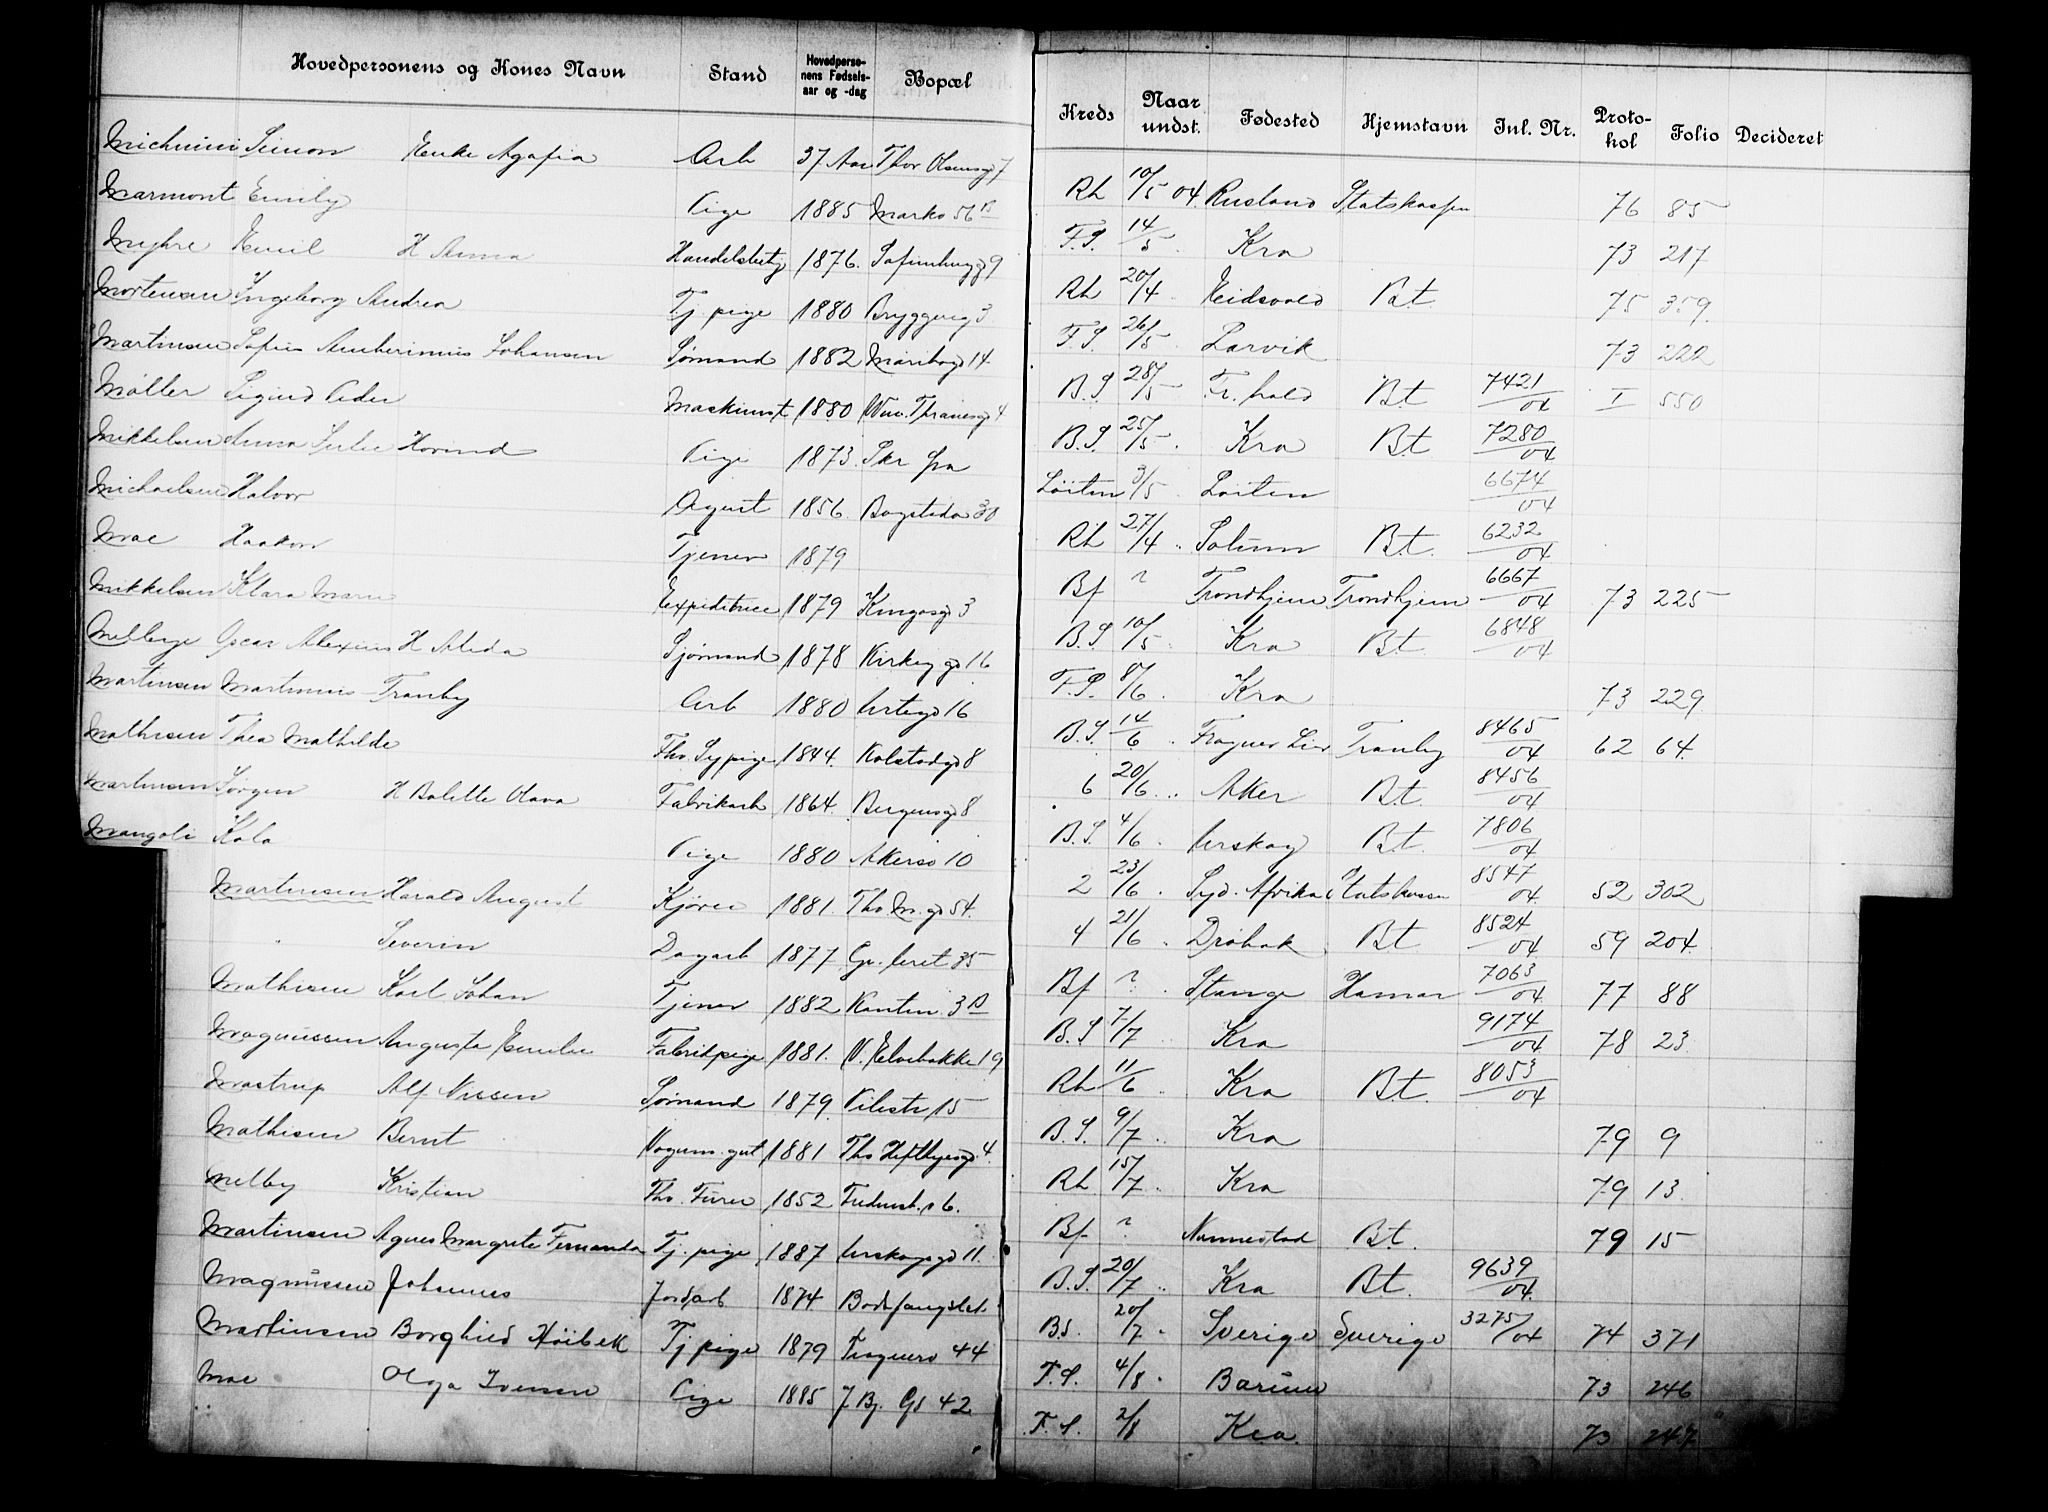 Hovedpersonens og Kones Navn Stand Hovedpersonens Fødselsaar og -dag Bopæl Kreds Naar undst. Fødested Hjemstavn Inl. Nr. Protokol Folio Decideret
Simon Enke Agafia Arb 37 Aar Thv Olsensgd 7 Rh 10/5 04. Rusland Statskassen 76 85
Marmont Emily Pige 1885 Markv 56 B F.S. 14/5 Kra 73 217
Myhre Emil H Anna Handelsbetj 1876. 9 Rh 20/4 Eidsvold Bt 75 359
Mortensen Ingeborg Andrea Tj. pige 1880 Bryggerig 3 F.S. 26/5 Larvik 73 222
Martinsen Johansen Sømand 1882 Maribogd 14 B.S 28/5 Fr. hald Bt 7421/04 I 550
Møller Sigurd Peder Maskinist 1880 Wm. Thranesgd 4 B.S. 25/5 Kra Bt 7280/04
Mikkelsen Anna Julie Hovind Pige 1873. Skr fra Löiten 3/5 Löiten 6674/04
Michaelsen Halvor Agent 1856. Bogstadv 30 Rh 27/4 Solum Bt. 6232/04
Moe Haakon Tjener 1879 Bf ? Trondhjem Trondhjem 6667/04 73 225
Mikkelsen Klara Marie Expeditrice 1879 Kingosgd 3 B.S 10/5 Kra Bt 6848/04
Melbye Oscar Alexius H Alida Sjømand 1878 Kirkeg gd 16 F.S. 8/6 Kra 73 229
Martinsen Martinius Tranby Arb 1880 Urtegd 16 B.S 14/6 Frogner Lier Tranby 8465/04 62 64.
Mathisen Thea Mathilde Fhv Sypige 1844. Kolstadgd 8 6 20/6 Aker Bt. 8456/04
Martinsen Jørgen H Bolette Olava Fabrikarb 1864. Bergensgd 8 B.S. 4/6 Urskog Bt. 7806/04
Mangoli Kola Pige 1880 Akersv 10 2 23/6 Syd. Afrika Statskassen 8547/04 52 302
Martinsen Harald August Kjører 1881. Thv M. gd 54. 4 21/6 Drøbak Bt 8524/04 59 204.
" Severin Dagarb 1877 Gr. leret 35 Bf ? Stange Hamar 7063/04 77 88
Mathisen Karl Johan Tjener 1882 Kantin. 3 B B.S 7/7 Kra 9174/04 78 23
Magnussen Augusta Emilie Fabrikpige 1881. N. Elvebakke 19 Rh 11/6 Kra Bt. 8053/04
Mostrup Alf Nissen Sømand 1879. Pilestr 15 B.S. 9/7 Kra 79 9
Mathisen Bernt Vognm. gut 1881 Ths Heftyesgd. 4. Rh 15/7 Kra 79 13.
Melby Kristian Fhv. Fører 1852 6. Bf ? Nannestad Bt. 79 15
Martinsen Agnes Margrete Fernanda Tj. pige 1887 Urskogsgd 11. B.S. 20/7 Kra Bt. 9639/04.
Magnussen Johannes Jordarb 1874 Bodsfængslet. BS. 20/7 Sverige Sverige 3275/04 74 371
Martinsen Borghild Höibek Tj pige 1879 Frognerv 44 F.S. 4/8 Bærum 73 246
Moe Olga Iversen Pige 1885 J. Bj. Gd 42 F.S. 2/8 Kra. 73